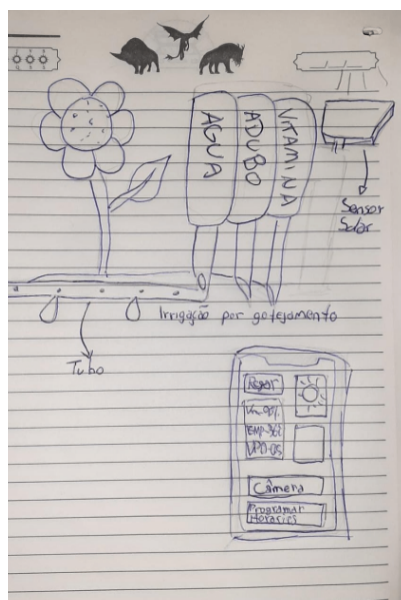 ÁGUA
ADUBO
VITAMINA
Sensor
Solar
Irrigação por gotejamento
Tubo
Regar
Câmera
Programar
Horários